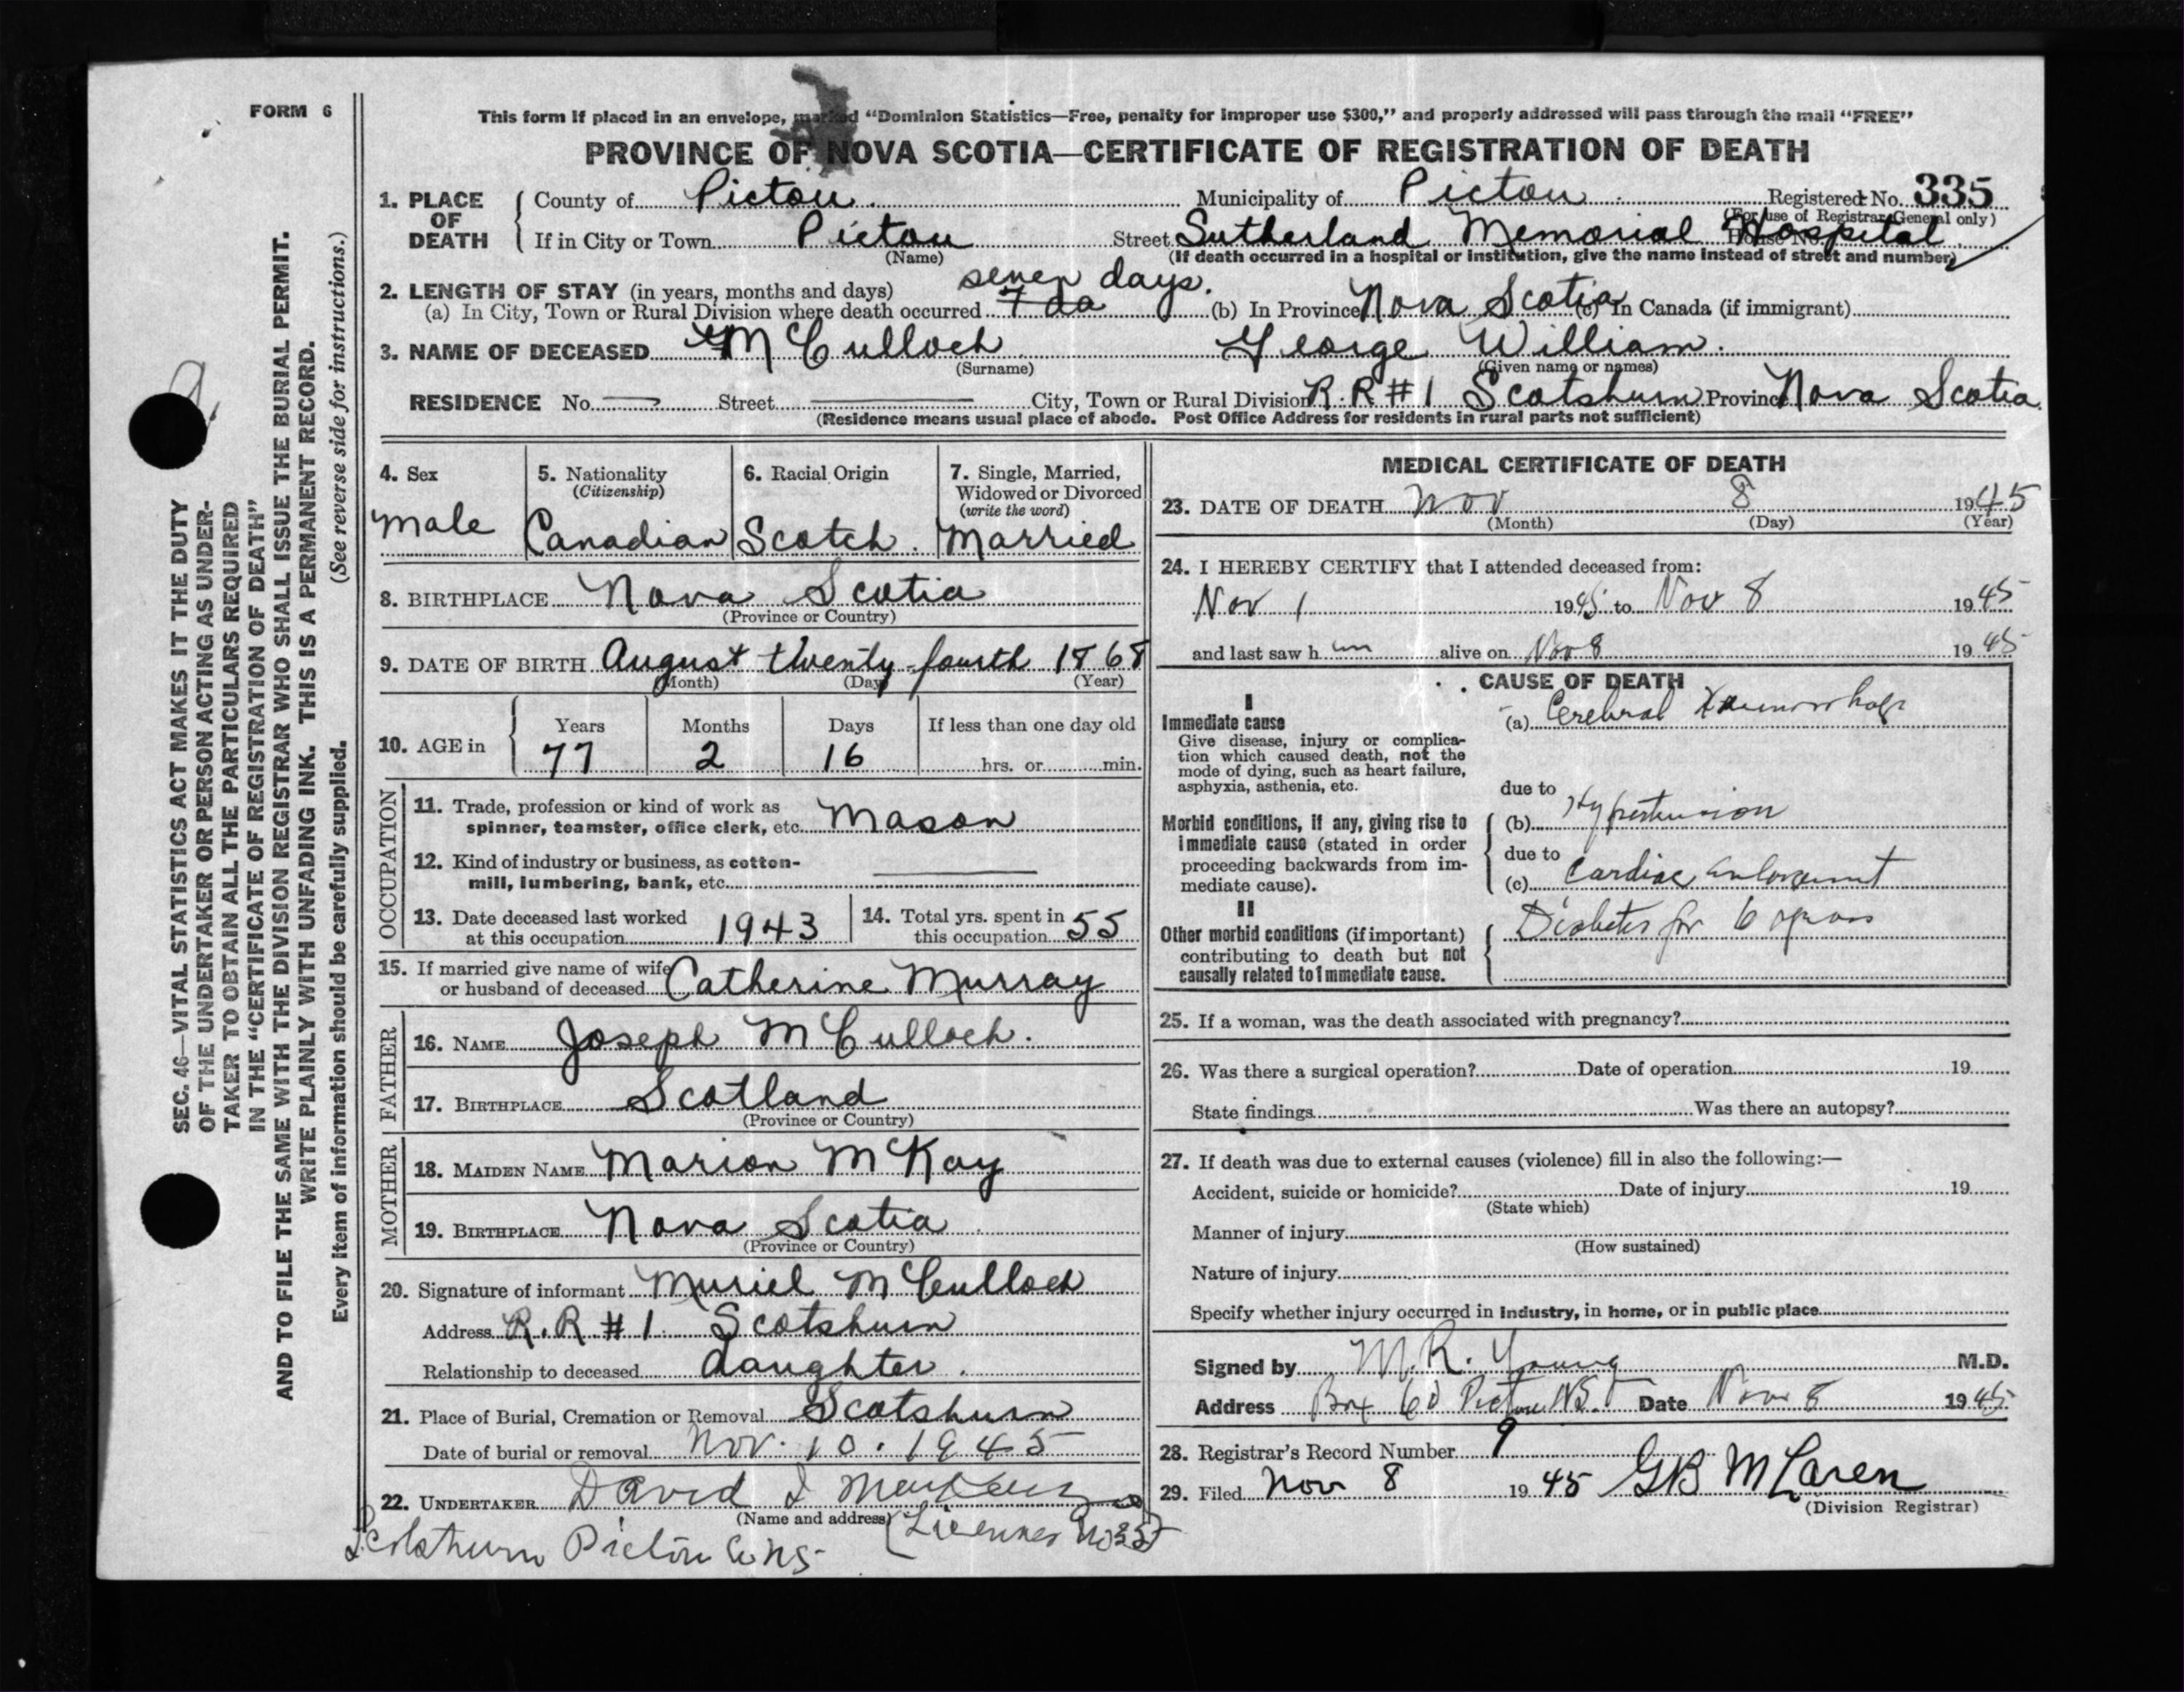 FORM 6
This form if placed in an envelope, marked "Dominion Statistics—Free, penalty for improper use $300," and properly addressed will pass through the mail "FREE"
PROVINCE OF NOVA SCOTIA—CERTIFICATE OF REGISTRATION OF DEATH
1. PLACE OF DEATH
County of Pictou. Municipality of Pictou Registered No. 335
(For use of Registrar General only)
If in City or Town Pictou Street Sutherland Memorial Hospital House No.
(Name) (If death occurred in a hospital or institution, give the name instead of street and number)
2. LENGTH OF STAY (in years, months and days) seven days.
(a) In City, Town or Rural Division where death occurred 7 da (b) In Province Nova Scotia (c) In Canada (if immigrant)
3. NAME OF DECEASED McCulloch George William.
(Surname) (Given name or names)
RESIDENCE No. Street City, Town or Rural Division R.R #1 Scotsburn Province Nova Scotia
(Residence means usual place of abode. Post Office Address for residents in rural parts not sufficient)
4. Sex
male
5. Nationality
(Citizenship)
Canadian
6. Racial Origin
Scotch.
7. Single, Married,
Widowed or Divorced
(write the word)
Married
8. BIRTHPLACE Nova Scotia
(Province or Country)
9. DATE OF BIRTH August twenty-fourth 1868
(Month) (Day) (Year)
10. AGE in
Years Months Days If less than one day old
77 2 16 hrs. or min.
OCCUPATION
11. Trade, profession or kind of work as
spinner, teamster, office clerk, etc. Mason
12. Kind of industry or business, as cotton-
mill, lumbering, bank, etc.
13. Date deceased last worked
at this occupation 1943
14. Total yrs. spent in
this occupation 55
15. If married give name of wife
or husband of deceased Catherine Murray
FATHER
16. NAME Joseph McCulloch.
17. BIRTHPLACE Scotland
(Province or Country)
MOTHER
18. MAIDEN NAME Marion McKay
19. BIRTHPLACE Nova Scotia
(Province or Country)
20. Signature of informant Muriel McCulloch
Address R.R #1 Scotsburn
Relationship to deceased daughter.
21. Place of Burial, Cremation or Removal Scotsburn
Date of burial or removal Nov. 10. 1945
22. UNDERTAKER David I
(Name and address)
Scotsburn Pictou Co NS
MEDICAL CERTIFICATE OF DEATH
23. DATE OF DEATH Nov 8 1945
(Month) (Day) (Year)
24. I HEREBY CERTIFY that I attended deceased from:
Nov 1 1945 to Nov 8 1945
and last saw h im alive on Nov 8 1945
CAUSE OF DEATH
I
Immediate cause
Give disease, injury or complica-
tion which caused death, not the
mode of dying, such as heart failure,
asphyxia, asthenia, etc.
(a) Cerebral Haemorrhage
due to
Morbid conditions, if any, giving rise to
immediate cause (stated in order
proceeding backwards from im-
mediate cause).
(b) Hypertension
due to
(c) Cardiac enlargement
II
Other morbid conditions (if important)
contributing to death but not
causally related to immediate cause.
Diabetes for 6 years
25. If a woman, was the death associated with pregnancy?
26. Was there a surgical operation? Date of operation 19
State findings Was there an autopsy?
27. If death was due to external causes (violence) fill in also the following:—
Accident, suicide or homicide? Date of injury 19
(State which)
Manner of injury
(How sustained)
Nature of injury
Specify whether injury occurred in industry, in home, or in public place
Signed by M.R. Young M.D.
Address Box 60 Pictou N.S. Date Nov 8 1945
28. Registrar's Record Number 9
29. Filed Nov 8 1945 GB McLaren
(Division Registrar)
SEC. 46—VITAL STATISTICS ACT MAKES IT THE DUTY
OF THE UNDERTAKER OR PERSON ACTING AS UNDER-
TAKER TO OBTAIN ALL THE PARTICULARS REQUIRED
IN THE "CERTIFICATE OF REGISTRATION OF DEATH"
AND TO FILE THE SAME WITH THE DIVISION REGISTRAR WHO SHALL ISSUE THE BURIAL PERMIT.
WRITE PLAINLY WITH UNFADING INK. THIS IS A PERMANENT RECORD.
Every item of information should be carefully supplied. (See reverse side for instructions.)